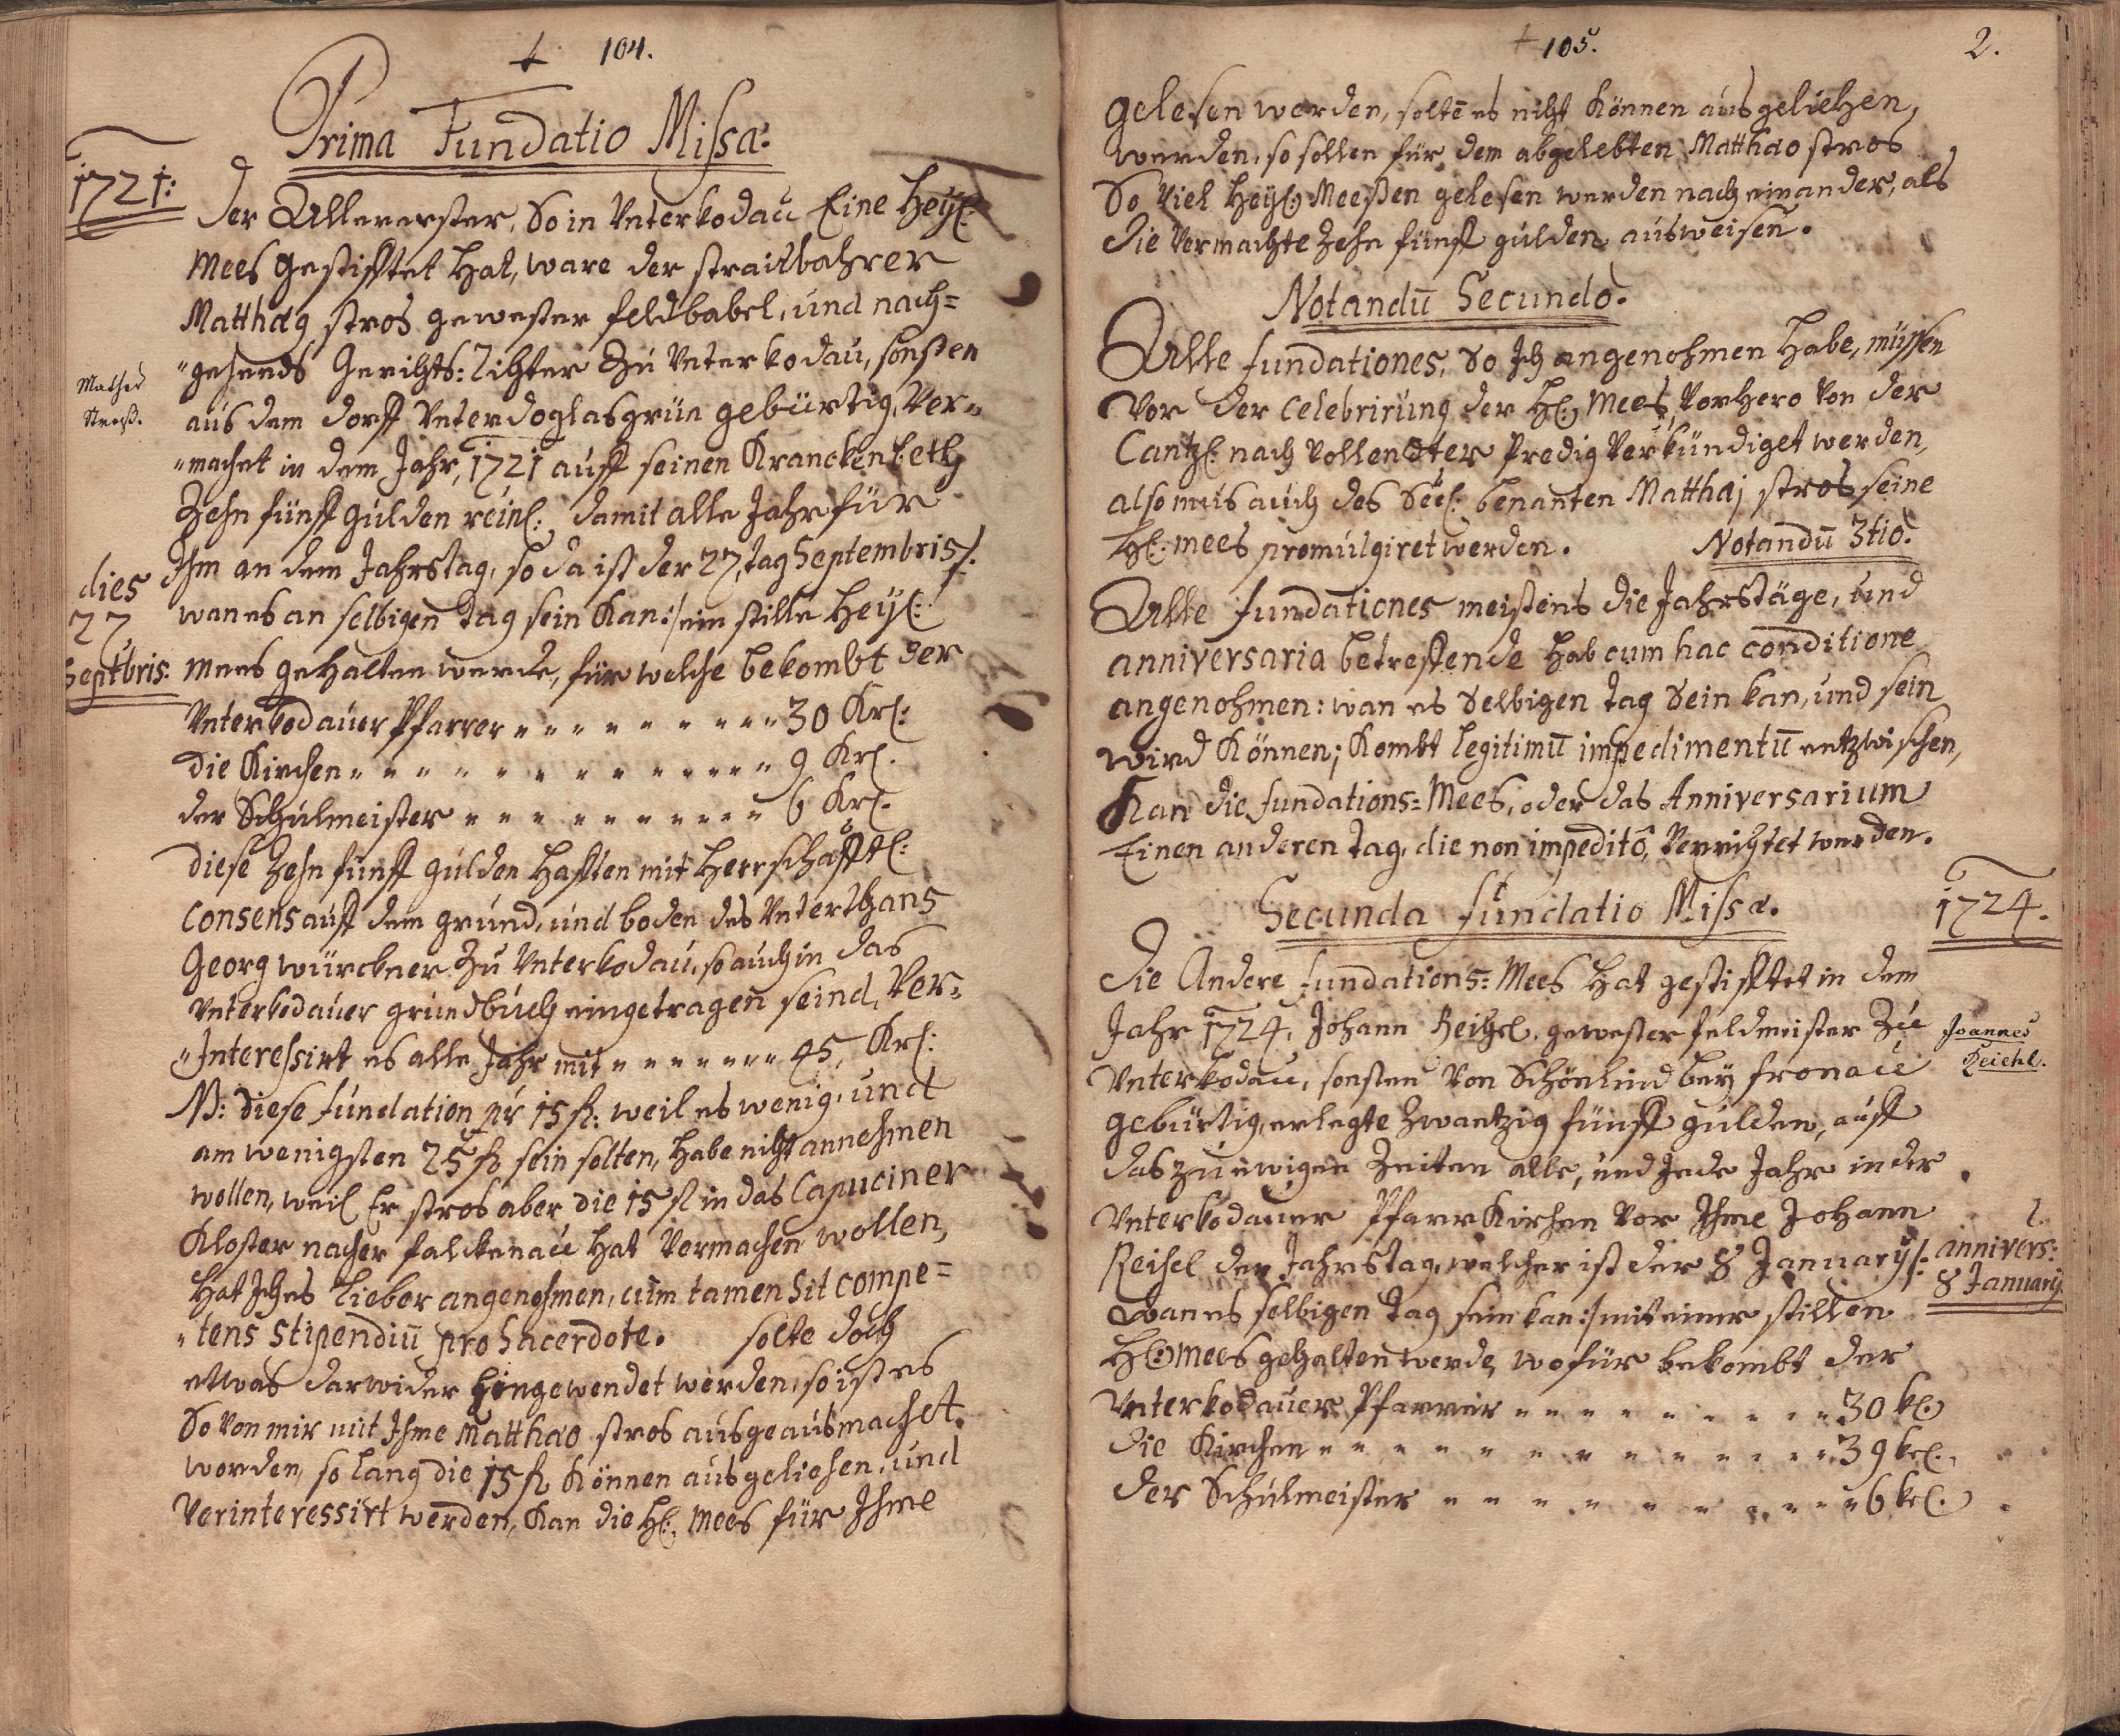 104.
Prima Fundatio Missæ.
1721:
Der Allererster, So in Unterkodau Eine Heyl:
Mees gestifftet Hat, ware der straitbahrer
Matthæg stros gewester feldbabel, und nach=
"gehends Gerichts: Richter zu Unterkodau, sonsten
Mathes
Stroß.
aus dem dorff Unterdoglasgrün gebürtig, Ver="
"machet in dem Jahr, 1721 auff seinen Kranckenbeth
Zehn fünff gulden reinl: damit alle Jahr für
Ihm an dem Jahrstag, so da ist der 27, tag Septembris /.
dies
27
Septbris:
wan es an selbigen tag sein Kan:/ ein stille Heyl:
mees gehalten werde, für welche bekombt der
Unterkodauer Pfarrer " " " " " " " " " 30 Krl:
die Kirchen " " " " " " " " " " " " 9 Krl.
der Schulmeister " " " " " " " " " " 6 Krl.
diese Zehn fünff gulden hafften mit Herrschafftl:
Consens auff dem grund, und boden des Unterthans
Georg würckner zu Unterkodau, so auch in das
Unterkodauer grundbuch eingetragen seind, Ver=
"Interessirt es alle Jahr mit " " " " " " " 45, Krl:
NB: diese fundation pr 15 fl: weil es wenig, und
am wenigsten 25 fl sein solten, habe nicht annehmen
wollen, weil Er stros aber die 15 fl in das Capuciner
Kloster nacher falckenau hat Vermachen wollen,
Hat Ichs lieber angenohmen, cum tamen sit compe=
"tens stipendiū pro Sacerdote. solte doch
etwas darwider hingewendet werden, so ist es
So Von mir mit Ihme Matthæo stros ausgeausmachet.
worden, so lang die 15 fl können ausgeliehen, und
Verinteressirt werden, Kan die Hl: Mees für Ihme
105.
2.
gelesen werden, soltē es nicht können ausgeliehen,
werden, so sollen für dem abgelebten Matthæo stros
So Viel Heyl: Meeßen gelesen werden nach einander, als
die Vermachte Zehn fünff gulden ausweisen.
Notandū Secundo.
Alle fundationes, So Ich angenohmen Habe, müssen
Vor der celebrirung der Hl: Mees, Vorhero Von der
Cantzl: nach Vollendter Predig Verkündiget werden,
also mus auch des Seel: benanten Matthæj stros seine
Hl: mees promulgiret werden.
Notandū 3tio.
Alle fundationes meistens die Jahrstäge, und
anniversaria betreffende hab cum hac conditione
angenohmen: wan es Selbigen tag Sein kan, und sein
wird Können; Kombt legitimū impedimentū entzwischen,
Kan die fundations=Mees, oder das Anniversarium
Einen anderen tag, die non impeditô, Verrichtet werden.
Secunda fundatio Missæ.
1724.
Die Andere fundations=Mees Hat gestifftet in dem
Jahr 1724, Johann Reichel, gewester feldmeister Zu
Joannes
Reichl.
Unterkodau, sonsten Von Schönlind bey fronau
gebürtig, erlegte Zwantzig fünff gulden, auff
das zu ewigen Zeiten alle, und Jede Jahr in der
Unterkodauer PfarrKirchen Vor Ihme Johann
Reichel den Jahrstag, welcher ist der 8 January /:
annivers:
8 January.
Wann es selbigen tag sein kan :/ mit einer stillen
Hl: mees gehalten werde, wofür bekombt der
Unterkodauer Pfarrer " " " " " " " " 30 kl:
die Kirchen " " " " " " " " " " " " 39 krl.,
der Schulmeister " " " " " " " " " " 6 krl.